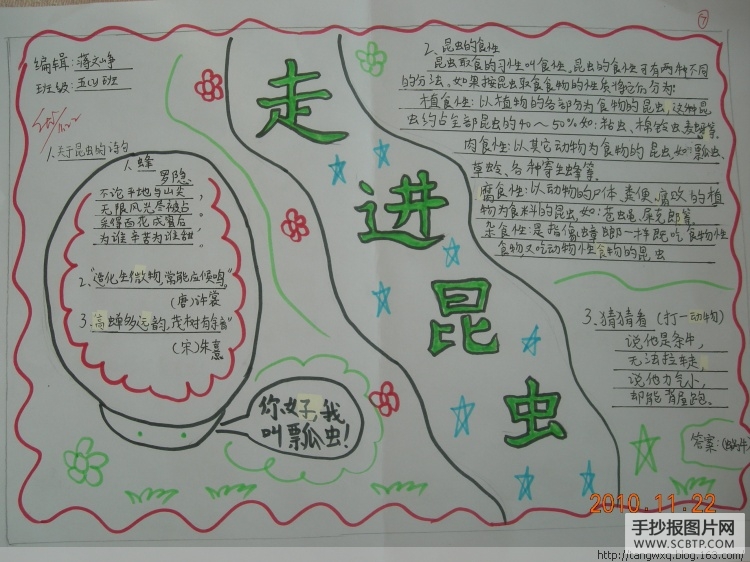 ⑦
编辑:蒋文峥
班级:五(4)班
走进昆虫
1.关于昆虫的诗句
1.蜂
罗隐
不论平地与山尖,
无限风光尽被占。
采得百花成蜜后
为谁辛苦为谁甜
2."造化生微物,常能应候鸣"
(唐)许棠
3."高蝉多远韵,茂树有余音"
(宋)朱熹
你好,我
叫瓢虫!
2、昆虫的食性
昆虫取食的习性叫食性。昆虫的食性可有两种不同
的分法。如果按昆虫取食食物的性质得它们分为:
植食性:以植物的各部分为食物的昆虫,这种昆
虫约占全部昆虫的40~50%如:粘虫、棉铃虫、等。
肉食性:以其它动物为食物的昆虫,如:瓢虫、
草蛉、各种寄生蜂等。
腐食性:以动物的尸体、粪便、腐败的植
物为食料的昆虫,如:苍蝇、等。
杂食性:是指像蟑螂一样既吃食物性
食物又吃动物性食物的昆虫
3、猜猜看(打一动物)
说他是条牛,
无法拉车走。
说他力气小,
却能背屋跑。
答案:(蜗牛)
2010.11.22
手抄报图片网
WWW.SCBTP.COM
http://tangwxq.blog.163.com/